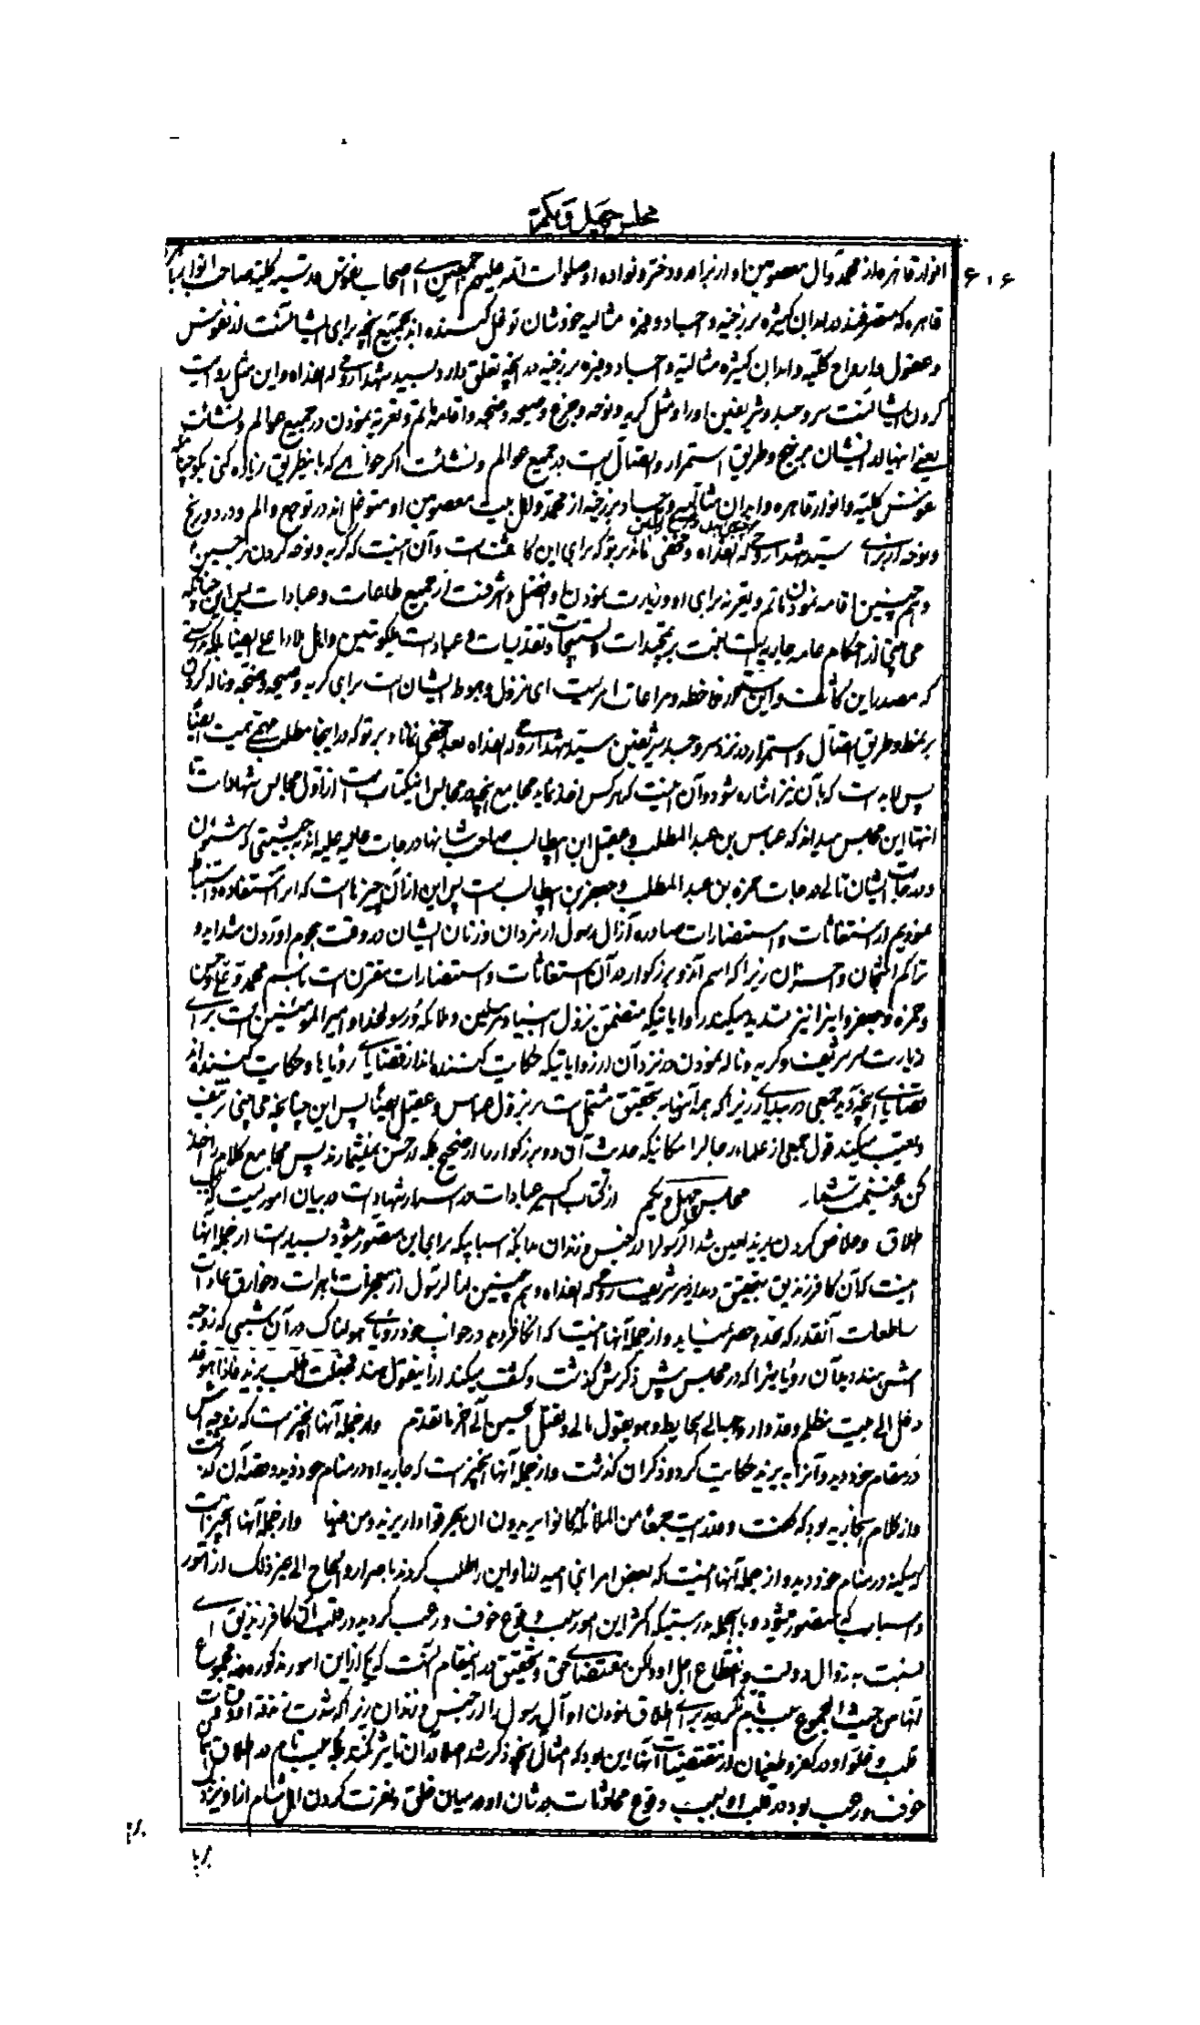 مجلس چهل و یکم
۶۰۶
انوار قاهره از محمد و آل معصومین او از برادر و دختر و نواده او صلوات الله علیهم اجمعین ای اصحاب نفوس قدسیه کلیه صاحب انوار
قاهره که متصرفند در ابدان کثیره برزخیه و اجساد وفیره مثالیه خودشان توغل کننده اند بجمیع آنچه برای ایشانست از نفوس
و عقول و ارواح کلیه و ابدان کثیره مثالیه و اجساد وفیره برزخیه در آنچه تعلق دارد بسید شهدا روحی له الفداه و این مثل
کردن ایشانست سر و جسد شریفین او را و مثل گریه و نوحه و جزع و صیحه و ضجه و اقامه ماتم و تعزیه نمودن در جمیع عوالم و نشئات
یعنی اینها از ایشان بر نهج و طریق استمرار و اتصال است در جمیع عوالم و نشئات اگر خواهی که باینطریق زیاده کنی بگو
نفوس کلیه و انوار قاهره و ابدان مثالیه و اجساد برزخیه از محمد و اهل بیت معصومین او متوغل اند در توجع و الم و درد و رنج
و نوحه از برای سید شهدا روحی له الفداه و مخفی نماند بر تو که برای این کاشف است و آن اینست که گریه و نوحه کردن بر حسین
و هم چنین اقامه نمودن ماتم و تعزیه برای او و زیارت نمودن او افضل و اشرفست از جمیع طاعات و عبادات پس این چنانکه
می بینی از احکام عامه جاریه است نسبت بر تمجیدات و تسبیحات و تقدیسات و عبادت ملکوتیین و اهل ملاء اعلی ایضا بلکه
که مصدر این کاشف و این ملاحظه و مراعات امریست ای نزول و هبوط ایشان است برای گریه و صیحه و ضجه و ناله کردن
بر نمط و طریق اتصال و استمرار در نزد سر و جسد شریفین سید شهدا روحی له الفداه بعد مخفی نماناد بر تو که در اینجا مطلب مهمی است ایضا
پس لابد است که بآن نیز اشاره شود و آن اینست که هر کس اخذ نماید مجامع آنچه در مجالس اینکتاب است از اول مجالس شهادات
انتها این مجلس میداند که عباس بن عبد المطلب و عقیل ابن ابیطالب صاحب شانها و درجات عالیه علیه اند بحیثیتی که شئون
و درجات ایشان تالی درجات حمزه بن عبد المطلب و جعفر بن ابیطالب است پس این از آن چیزهاست که ما استفاده و استنباط
نمودیم از استغاثات و استنصارات صادره از آل رسول از مردان و زنان ایشان در وقت هجوم آوردن شداید و
تراکم اشجان و احزان زیرا که اسم آندو بزرگوار در آن استغاثات و استنصارات مقترن است باسم محمد و علی و حسن
و حمزه و جعفر و اینرا نیز تسدید میکند روایاتیکه متضمن نزول انبیاء و مرسلین و ملائکه و رسولخدا و امیرالمومنین است برای
زیارت سر شریف و گریه و ناله نمودن در نزد آن از روایاتیکه حکایت کننده اند از قضایای رؤیاها و حکایت کننده اند
قضایای آنچه دید جمعی در بیداری زیرا که همه آنها بتحقیق مشتمل است بر نزول عباس و عقیل ایضا پس این چنانچه می بینی تزییف
و تعییب میکند قول جمعی از علماء رجال را مکانیکه حدیث آن دو بزرگوار را از صحیح بلکه از حسن نمیشمارند پس مجامع کلام را اخذ
کن و غنیمت شمار مجلس چهل و یکم از کتاب اکسیر عبادات در اسرار شهادت در بیان اموریست که
طلاق و خلاص کردن یزید لعین شد آل رسول را از حبس و زندان بدانکه اسبابیکه برای این متصور میشود بسیارست از جمله آنها
اینست که آن کافر زندیق بتحقیق دید از سر شریف روحی له الفداه و هم چنین از آل رسول از معجزات باهرات و خوارق عادات
ساطعات آنقدر که بعد و حصر نمیاید و از جمله آنها اینست که آنکافر دید در خواب خود رؤیای هولناک در آن شبی که زوجه
اش هند دید آن رؤیا را که در مجلس پیش ذکرش گذشت و کشف میکند از آن قول هند فجعلت اطلب یزید فاذا هو قد
دخل الی بیت مظلم و قد دار وجهه الی الحایط و هو یقول مالی و لقتل الحسین الی آخر ما تقدم و از جمله آنها آنچیزیست که زوجه اش
در مقام خود دید و آنرا به یزید حکایت کرد و ذکر آن گذشت و از جمله آنها آنچیزیست که جاریه او در منام خود دید و قصه آن گذشت
و از کلام آنجاریه بود که گفت و قد رایت جمعا من الملائکة کانوا یریدون ان یحرقوا دار یزید و من فیها و از جمله آنها آنچیزیست
که سکینه در منام خود دید و از جمله آنها اینست که بعض امرا بنی امیه لعنا و این را طلب کردند باصرار و الحاح الی غیر ذلک از امور
و اسباب که متصور میشود و بالجمله بدرستیکه اکثر این امور سبب وقوع خوف و رعب گردید در قلب آن کافر زندیق ای
نسبت به زوال دولت و انقطاع اجل او ولکن مقتضای حق و تحقیق در اینمقام آنست که یکی از این امور مذکوره و نه مجموع
آنها من حیث المجموع سبب تام نگردید برای اطلاق نمودن او آل رسول را از حبس و زندان زیرا که شدت
قلب و غلو او در کفر و طغیان از مقتضیات آنها این بود که امثال آنچه ذکر شد اصلا در آن تاثیر نکند بلکه سبب تام در اطلاق آنها
خوف و رعب بود در قلب او بسبب وقوع محادثات در شان او در میان خلق و نفرت کردن اهل شام از او و یزید